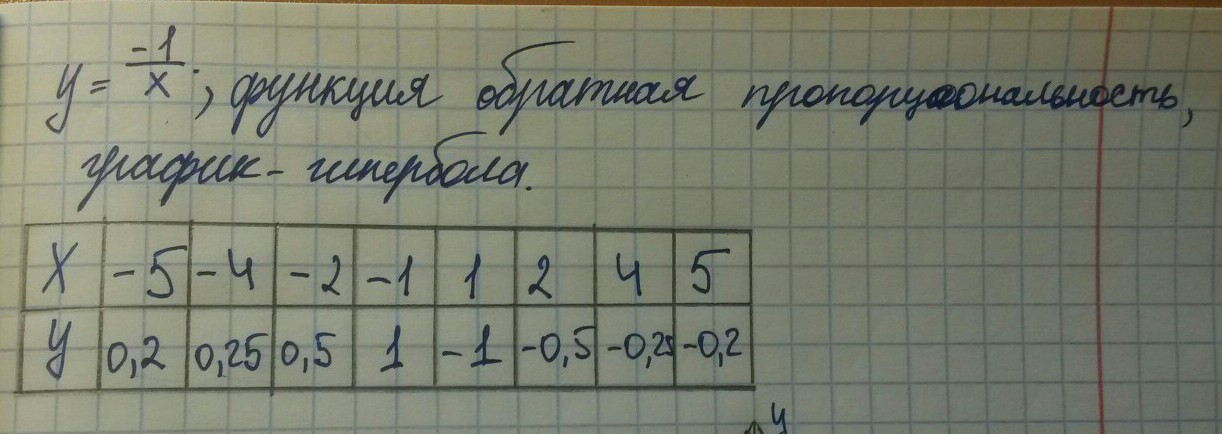 y = -1/x; функция обратная пропорциональность,
график - гипербола.
X -5 -4 -2 -1 1 2 4 5
y 0,2 0,25 0,5 1 -1 -0,5 -0,25 -0,2
y